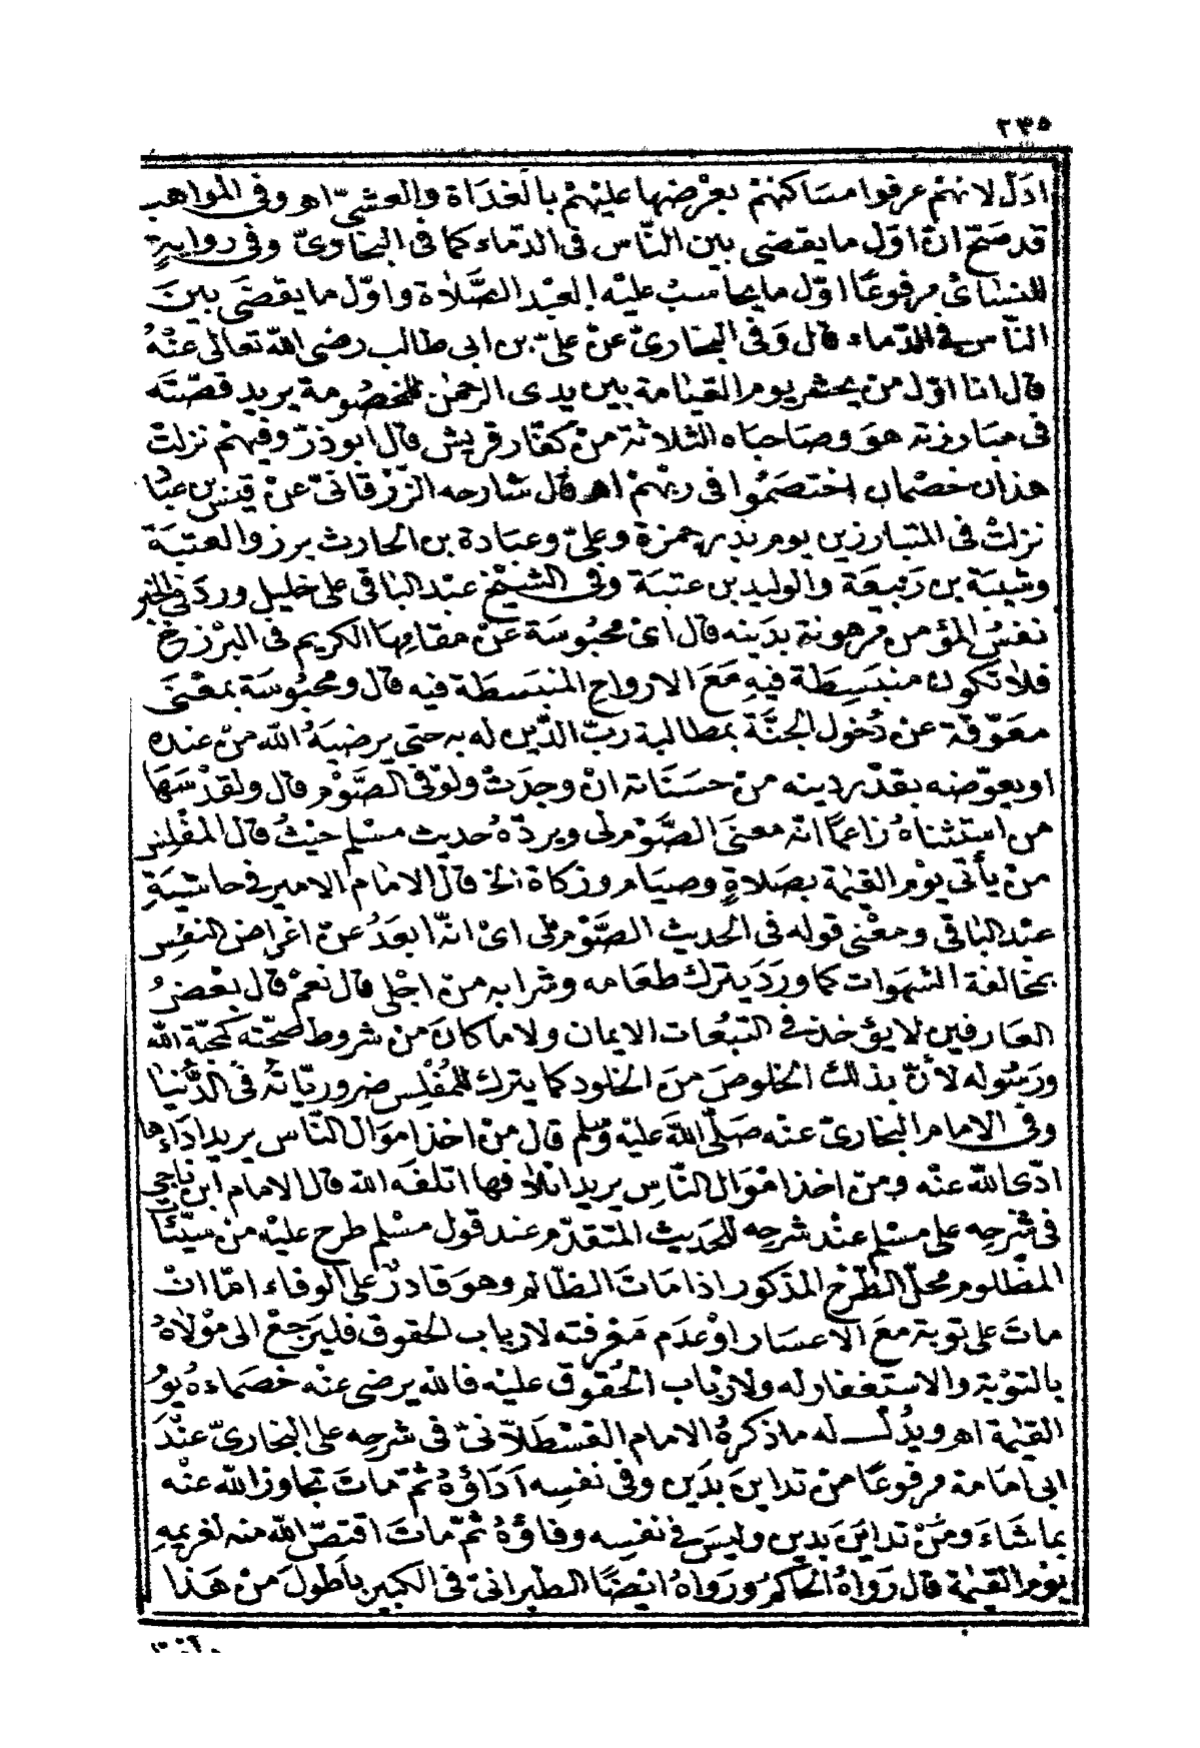 ٢٣٥
ادَلّ لانهمْ عرفوا مسَاكنهمْ بعرْضها عليْهمْ بالْغدَاة والْعشىّ اهـ وفى المواهب
قد صَحّ انّ اوّل ما يقضى بين النّاس فى الدّماء كما فى البخارىّ وفى روايةٍ
للنسَائ مرفوعًا اوّل ما يحاسبُ عليْه العبْد الصَّلاة واوّل ما يقضَى بينَ
النّاس فى الدّماء قال وَفى البخارىّ عنْ علىّ بن ابى طالب رضى الله تعالى عنْهُ
قال انا اوّل منْ يحشر يوم القيَامة بين يدى الرحمٰن للخصُومة يريد قصّتَه
فى مبَارزته هوَ وصَاحباه الثلاثة منْ كفّار قريش قال ابو ذرّ وفيهمْ نزلتْ
هذان خصْمان اختصَمُوا فى ربّهمْ اهـ قال شارحه الزّرْقانىّ عنْ قيْس بن عبَّا
نزلتْ فى المتبارزين يوم بدْر حمزة وعلىّ وعبَادة بن الحارث برزوا لعتبَة
وشيْبَة بن رَبيعَة والوليد بن عتبَة وفى الشيْخ عبْد الباقى على خليل وردَ فى الخبر
نفسُ المؤمن مرهونة بدَينه قال اىْ محبُوسَة عنْ مقامِهَا الكريم فى البرْزخ
فلاَ تكون منبَسِطَة فيهِ مَعَ الارواحِ المنبَسطَة فيه قال ومحبُوسَة بمعْنَى
معَوّقة عن دُخول الجنَّة بمطالبة ربّ الدَّين له به حتى يرضيَهُ الله منْ عنده
او يعوّضه بقدْر دينه منْ حسَنَاته انْ وجدَتْ ولوْ فى الصَّوْم قال ولقدْ سَهَا
من استثناهُ زاعمًا انّه معنى الصَّوْم لى ويردّهُ حديث مسْلم حيْثُ قال المفْلِس
منْ يأتى يوْم القيٰمة بصَلاةٍ وصيَام وزكاة الخ قال الامَام الامير فى حاشيَةِ
عبْد البَاقى ومعْنى قوله فى الحديث الصَّوْم لى اىْ انّه ابعَدُ عنْ اغراض النفس
بمخالفة الشهَوات كما ورَدَ يترك طعَامه وشرابه منْ اجْلى قال نعمْ قال بعْضُ
العَارفين لا يؤخذ فى التبعَات الايمان ولا ما كانَ منْ شروط صحّته كمحبّة الله
ورَسُوله لأنّ بذلك الخلوصَ منَ الخلود كما يترك للمُفْلِس ضروريّاته فى الدُّنيَا
وفى الامام البخارىّ عنْه صَلَّى اللهَ عليْه وَسلم قال منْ اخذ اموَال النّاس يريد ادَاءها
ادّى الله عنْه ومنْ اخذ امْوَال النّاسِ يريد اتلافها اتلفَه الله قال الامَام ابن ناجى
فى شرْحِه على مسْلم عنْد شرْحِه للحَديث المتقدّم عند قول مسْلم طرح عليْه منْ سيّئا
المظْلوم محلّ الطّرْح المذكور اذا مَات الظّالم وهوَ قادرٌ على الوفاء امّا انْ
ماتَ على توبة معَ الاعسَار اوْ عدَم مَعْرفته لارباب الحقوق فليَرجعْ الى موْلاهُ
بالتوْبة والاستغفار له ولارْبَاب الحُقوق عليْه فالله يرضى عنْه خصمَاءه يوْ
القيٰمة اهـ ويدُلّ له ما ذكرهُ الامام القسْطَلاّنىّ فى شرحِه على البخارىّ عنْدَ
ابى امَامة مرفوعًا منْ تداينَ بدَين وفى نفسِه ادَاؤهُ ثمّ ماتَ تجاوز الله عنْه
بما شاءَ ومَنْ تدايَنَ بدين وليسَ فى نفسِه وفاؤهُ ثمّ ماتَ اقتصّ الله منه لغريمِهِ
يوْم القيٰمة قال رَواهُ الحاكمُ ورَواهُ ايْضًا الطبرانىّ فى الكبير بأطولَ منْ هَذا